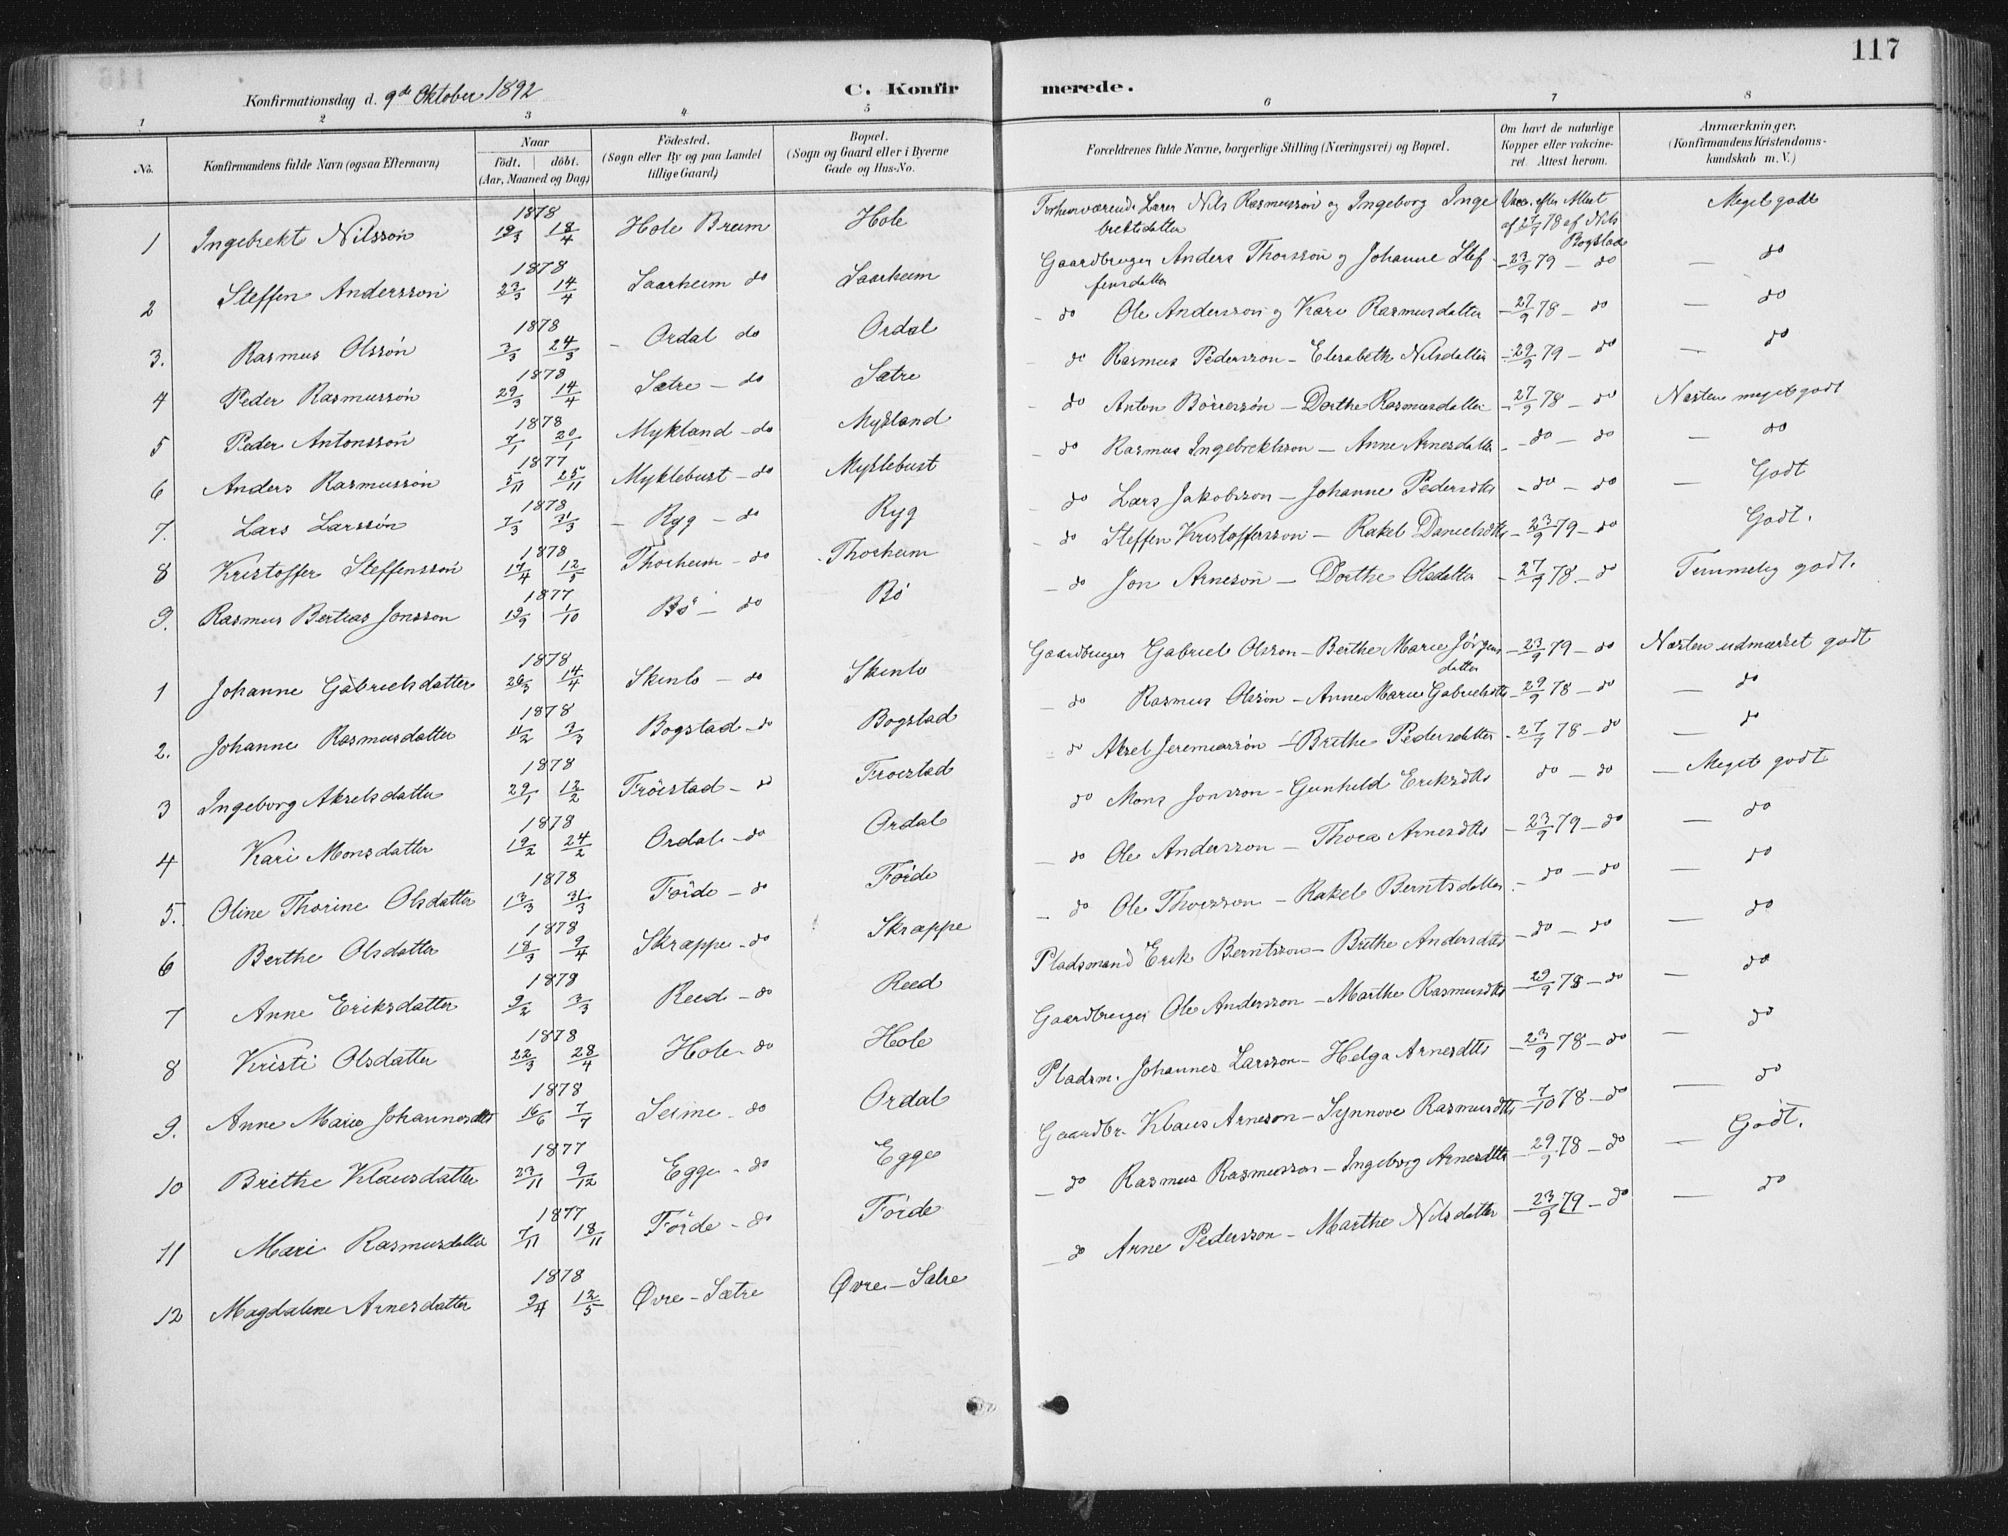 117
Konfirmationsdag d. 9de Oktober 1892
C. Konfirmerede.
1 2 3 4 5 6 7 8
No. | Konfirmandens fulde Navn (ogsaa Efternavn) | Naar født. døbt. (Aar, Maaned og Dag) | Födested. (Sogn eller By og paa Landet tillige Gaard) | Bopæl. (Sogn og Gaard eller i Byerne Gade og Hus-No. | Forældrenes fulde Navne, borgerlige Stilling (Næringsvei) og Bopæl. | Om havt de naturlige Kopper eller vakcineret. Attest herom. | Anmærkninger. (Konfirmandens Kristendomskundskab m. V.)
1 Ingebrekt Nilssøn 1878 19/3 18/4 Hole Breim Hole Forhenværende Lærer Nils Rasmussøn og Ingeborg Ingebrektsdatter Vacc. efter Attest af 27/9 78 af Nils Bogstad Meget godt
2 Steffen Anderssøn 1878 23/3 14/4 Saarheim do Saarheim Gaardbruger Anders Thorssøn og Johanne Steffensdatter - 23/9 79 - do - do
3. Rasmus Olssøn 1878 3/3 24/3 - Ordal do Ordal - do Ole Anderssøn og Kari Rasmusdatter - 27/9 78 - do - do
4 Peder Rasmussøn 1878 29/3 14/4 Sætre - do Sætre do Rasmus Pederssøn - Elisabeth Nilsdatter - 29/9 79 - do - do
5 Peder Antonssøn 1878 7/1 20/1 Mykland - do Mykland - do Anton Børressøn - Dorthe Rasmusdatter - 27/9 78 - do Næsten meget godt
6 Anders Rasmussøn 1877 5/11 25/11 Myklebust - do Myklebust - do Rasmus Ingebrektsson - Anne Arnesdatter - do - do - do
7. Lars Larssøn 1878 7/3 31/3 - Ryg - do Ryg do Lars Jakobsson - Johanne Pedersdtr - do - do - Godt
8 Kristoffer Steffenssøn 1878 17/4 12/5 Thorheim - do Thorheim - do Steffen Kristoffersson - Rakel Danielsdtr - 23/9 79 - do Godt.
9. Rasmus Bertias Jonsson 1877 19/9 1/10 Bø - do Bø - do Jon Arnesøn - Dorthe Olsdatter - 27/9 78 - do Temmelig godt.
1 Johanne Gabrielsdatter 1878 26/3 14/4 Skinlo - do Skinlo Gaardbruger Gabriel Olsson - Berthe Marie Jørgensdatter - 23/9 79 - do Næsten udmærket godt
2. Johanne Rasmusdatter 1878 11/2 3/3 Bogstad - do Bogstad - do Rasmus Olssøn - Anne Marie Gabrielsdtr - 29/9 78 - do - do
3 Ingeborg Akselsdatter 1878 29/1 12/2 Frøistad - do Frøistad do Aksel Jeremiassøn - Brithe Pedersdatter - 27/9 78 - do - do
4 Kari Monsdatter 1878 19/2 24/2 Ordal - do Ordal do Mons Jonsson - Gunhild Eriksdtr do - do - Meget godt
5. Oline Thorine Olsdatter 1878 13/3 31/3 Førde - do Førde - do Ole Andersson - Thora Arnesdtr - 23/9 79 - do - do
6 Berthe Olsdatter 1878 18/3 9/4 Skrappe - do Skrappe - do Ole Thorsson - Rakel Berntsdatter - do - do - do
7 Anne Eriksdatter 1878 9/2 3/3 Reed - do Reed Pladsmand Erik Berntsson - Brithe Andersdtr - do - do - do
8 Kristi Olsdatter 1878 22/3 28/4 Hole - do Hole Gaardbruger Ole Andersson - Marthe Rasmusdtr - 29/9 78 - do - do
9. Anne Marie Johannesdtr 1878 16/6 7/7 Seime - do Ordal Pladsm. Johannes Larsson - Helga Arnesdtr - 23/9 78 - do - do
10 Brithe Klausdatter 1877 23/11 9/12 Egge - do Egge Gaardbr. Klaus Arneson - Synnove Rasmusdtr - 7/10 78 - do - do
11 Mari Rasmusdatter 1877 7/11 18/11 Førde - do Førde - do Rasmus Rasmusson - Ingeborg Arnesdtr - 29/9 78 - do - Godt.
12 Magdalene Arnesdatter 1878 9/4 12/5 Øvre - Sætre Øvre - Sætre - do Arne Pedersson - Marthe Nilsdatter - 23/9 79 - do - do